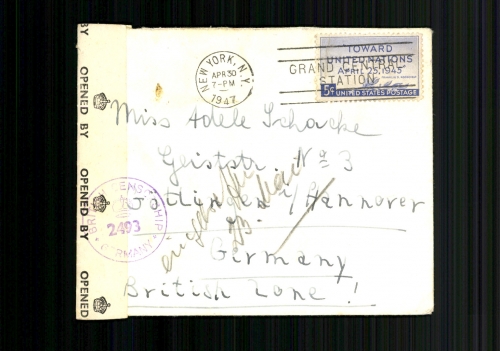 OPENED BY
OPENED BY
OPENED BY
OPENED
NEW YORK, N.Y.
APR 30
7-PM
1947
GRAND CENTRAL
STATION
TOWARD
UNITED NATIONS
APRIL 25, 1945
5¢ UNITED STATES POSTAGE
Miss Adele Schacke
Geiststr. No 3
Göttingen / Hannover
Germany
British Zone!
BRITISH CENSORSHIP
2403
GERMANY